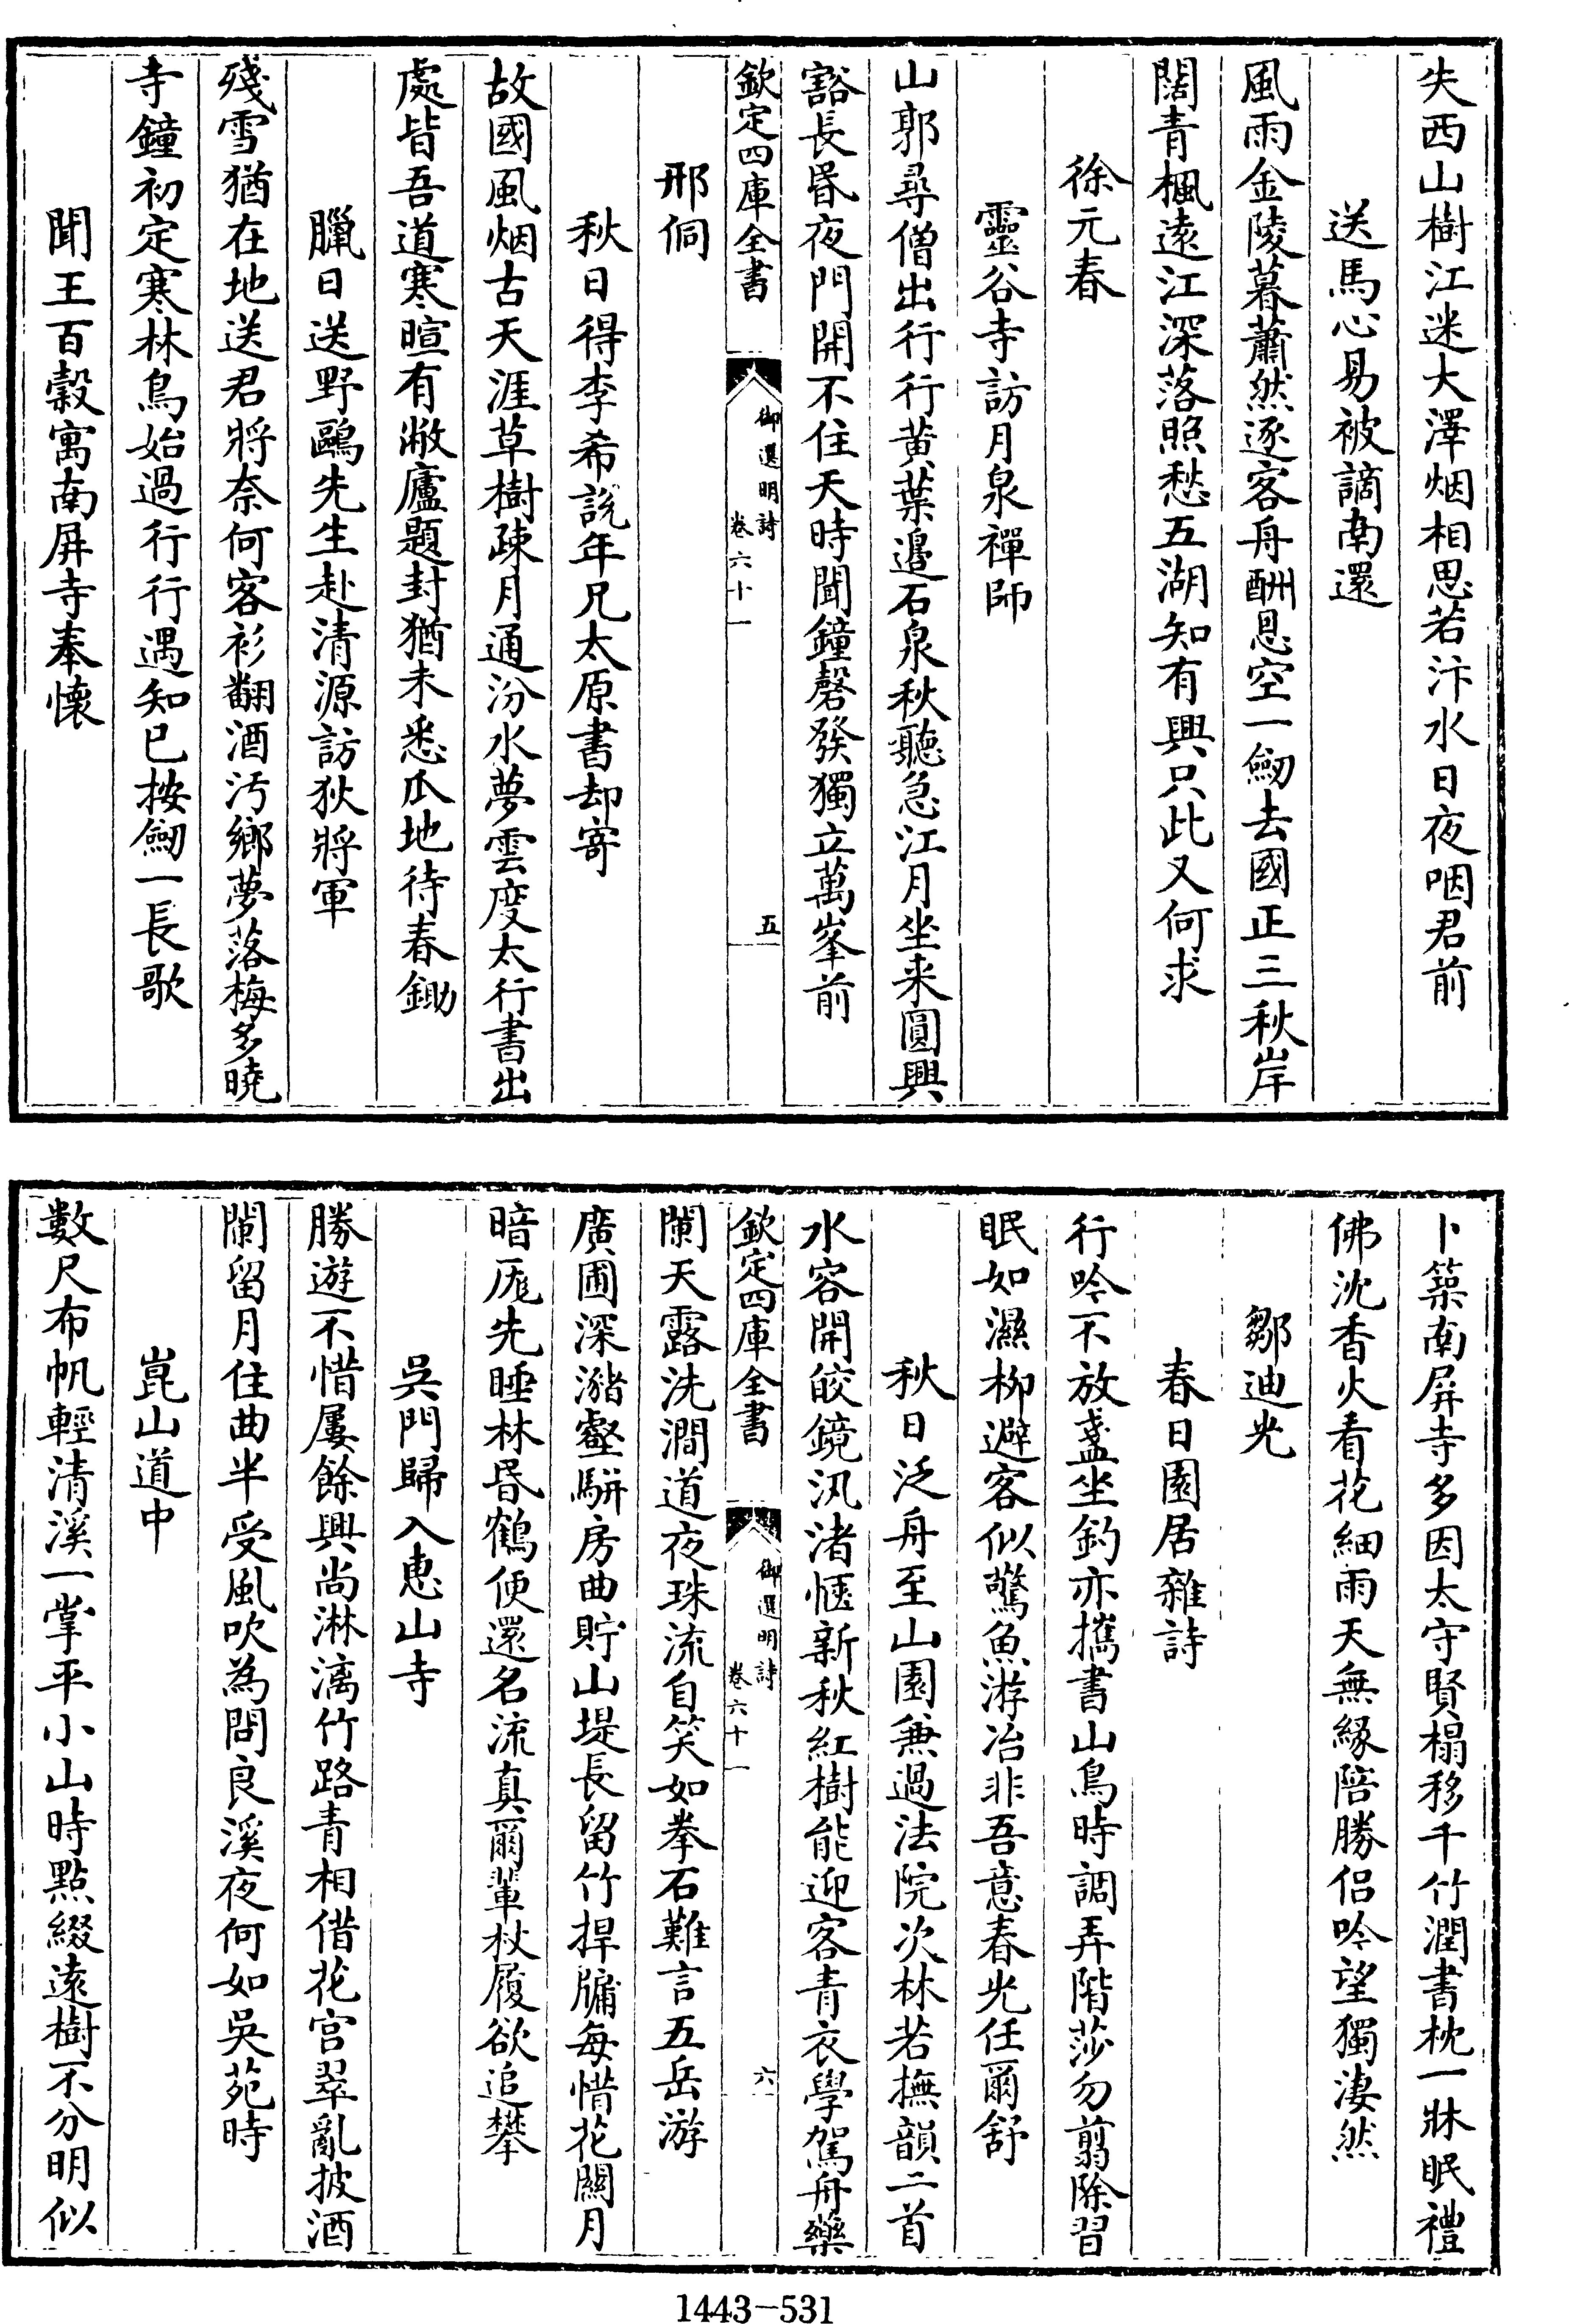 失西山樹江迷大澤烟相思若汴水日夜咽君前
送馬心易被謫南還
風雨金陵暮蕭然逐客舟酬恩空一劒去國正三秋岸
闊青楓遠江深落照愁五湖知有興只此又何求
徐元春
靈谷寺訪月泉禪師
山郭尋僧出行行黄葉邉石泉秋聽急江月坐来圓興
豁長昬夜門開不住天時聞鐘磬發獨立萬峯前
欽定四庫全書
御選明詩
卷六十一
五
邢侗
秋日得李希説年兄太原書却寄
故國風烟古天涯草樹疎月通汾水夢雲度太行書出
處皆吾道寒暄有敝廬題封猶未悉瓜地待春鋤
臘日送野鷗先生赴清源訪狄將軍
殘雪猶在地送君將奈何客衫翻酒汚鄉夢落梅多曉
寺鐘初定寒林鳥始過行行遇知已按劒一長歌
聞王百榖寓南屏寺奉懷
卜築南屏寺多因太守賢榻移千竹潤書枕一牀眠禮
佛沈香火看花細雨天無緣陪勝侣吟望獨淒然
鄒迪光
春日園居雜詩
行吟不放盞坐釣亦攜書山鳥時調弄階莎勿翦除習
眠如濕柳避客似驚魚游冶非吾意春光任爾舒
秋日泛舟至山園兼過法院次林若撫韻二首
水容開皎鏡汎渚愜新秋紅樹能迎客青衣學駕舟藥
欽定四庫全書
御選明詩
卷六十一
六
闌天露洗澗道夜珠流自笑如拳石難言五岳游
廣圃深瀦壑駢房曲貯山堤長留竹捍牖每惜花關月
暗厖先睡林昬鶴便還名流真爾輩杖履欲追攀
吳門歸入惠山寺
勝遊不惜屢餘興尚淋漓竹路青相借花宫翠亂披酒
闌留月住曲半受風吹為問良溪夜何如吳苑時
崑山道中
數尺布帆輕清溪一掌平小山時點綴遠樹不分明似
1443-531